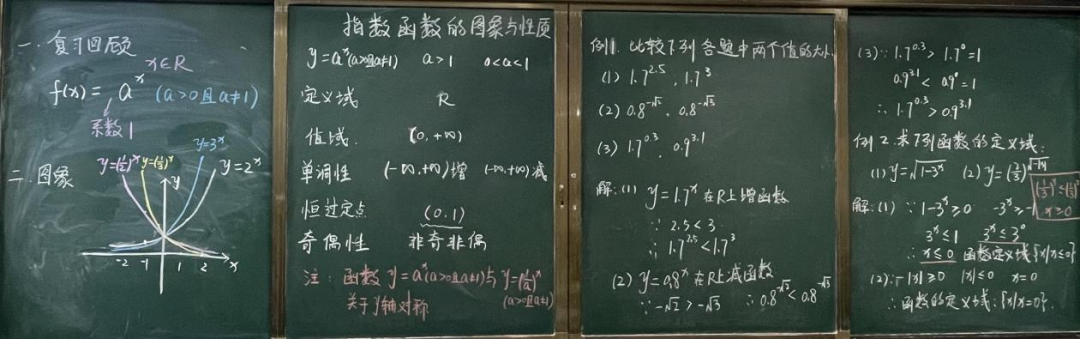 一. 复习回顾
x∈R
f(x) = a^x (a>0且a≠1)
系数1
二. 图象
y=(1/2)^x y=(1/3)^x y=3^x y=2^x
y
-2 -1 1 2 x
指数函数的图象与性质
y=a^x(a>0且a≠1) a>1 0<a<1
定义域 R
值域. (0,+∞)
单调性 (-∞,+∞)增 (-∞,+∞)减
恒过定点 (0.1)
奇偶性 非奇非偶
注: 函数y=a^x(a>0且a≠1)与y=(1/a)^x
(a>0且a≠1)
关于y轴对称
例1. 比较下列各题中两个值的大小.
(1) 1.7^2.5 , 1.7^3
(2) 0.8^-√2 , 0.8^-√3
(3) 1.7^0.3 , 0.9^3.1
解:(1) y=1.7^x 在R上增函数
∵ 2.5<3
∴ 1.7^2.5<1.7^3
(2) y=0.8^x 在R上减函数
∵ -√2>-√3 ∴ 0.8^-√2<0.8^-√3
(3)∵ 1.7^0.3>1.7^0=1
0.9^3.1<0.9^0=1
∴ 1.7^0.3>0.9^3.1
例2.求下列函数的定义域:
(1)y=√1-3^x (2)y=(2/3)^√-|x|
解:(1) ∵ 1-3^x≥0 -3^x≥-1
3^x≤1 3^x≤3^0
∴ x≤0 函数定义域{x|x≤0}
(1/3)^x≤(1/3)^0
x≥0
(2)∵-|x|≥0 |x|≤0 x=0
∴函数的定义域:{x|x=0}.